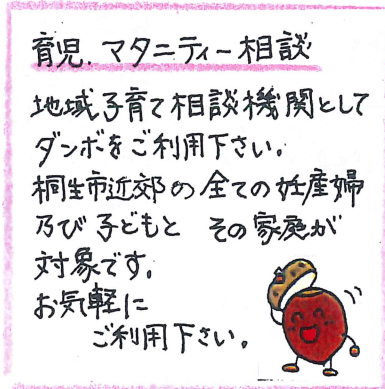 育児．マタニティー相談
地域子育て相談機関として
ダンボをご利用下さい。
桐生市近郊の全ての妊産婦
及び子どもと その家庭が
対象です。
お気軽に
ご利用下さい。